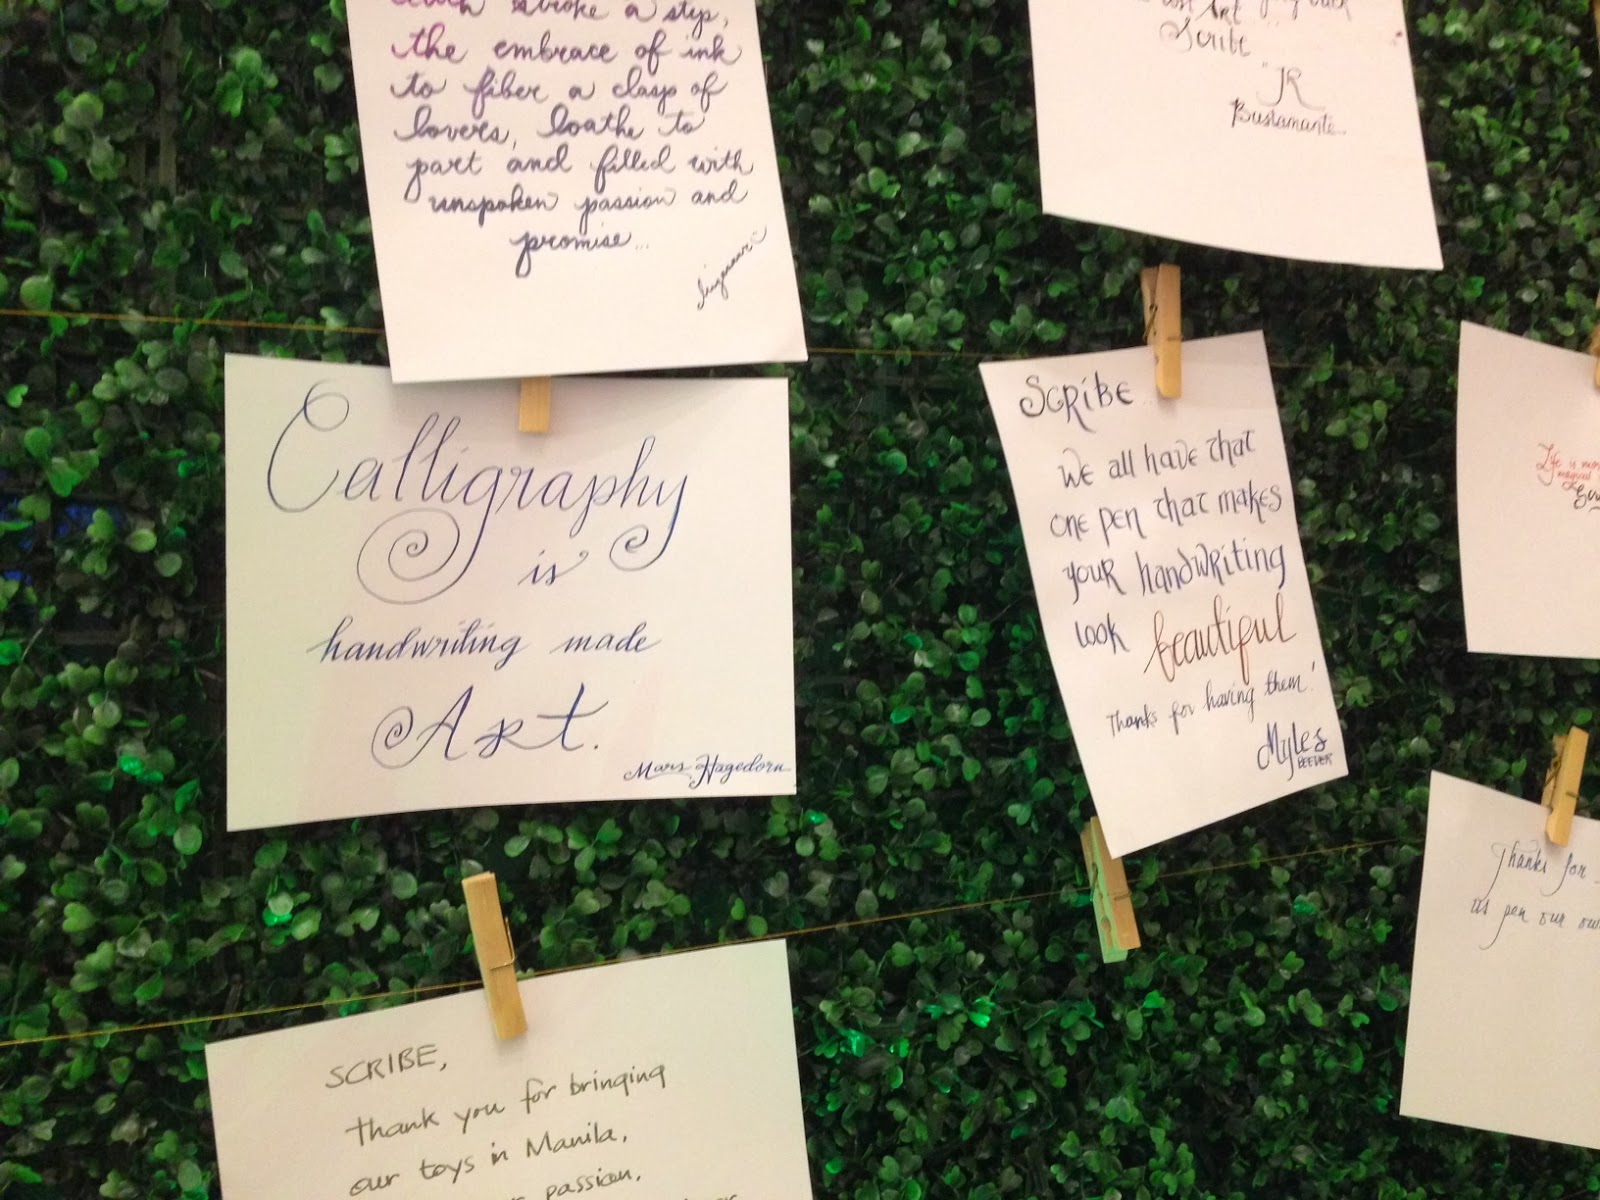 stroke a step,
the embrace of ink
to fiber a clasp of
lovers, loathe to
part and filled with
unspoken passion and
promise...
Art
Scribe
"JR
Bustamante
Calligraphy
is
handwriting made
Art.
Mars Hagedorn
SCRIBE..
We all have that
one pen that makes
your handwriting
look beautiful
Thanks for having them!
Myles
BEEVER
Life is
magical
Thanks for
us pen our
SCRIBE,
Thank you for bringing
our toys in Manila,
passion.